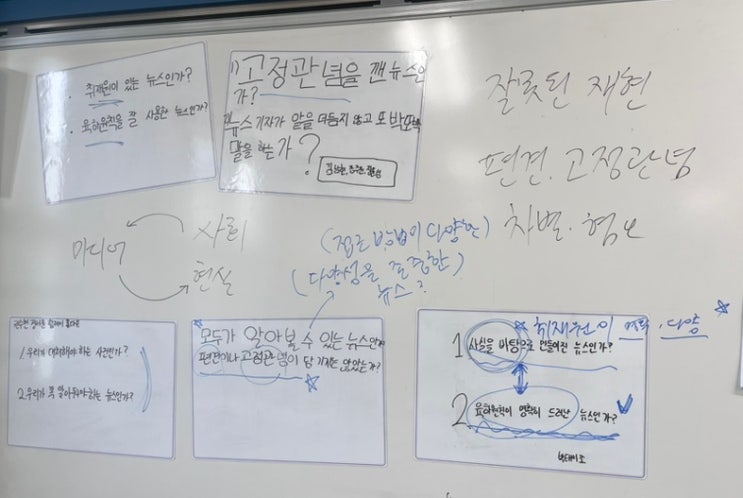 · 취재원이 있는 뉴스인가?
· 육하원칙을 잘 사용한 뉴스인가?
1) 고정관념을 깬 뉴스인
가?
뉴스 기자가 말을 더듬지 않고 또박또박
말을 하는가?
잘못된 재현
편견. 고정관념
차별. 혐오
미디어
사회
현실
(접근 방법이 다양한)
(다양성을 존중한)
뉴스?
1. 우리가 대처해야 하는 사건인가?
2. 우리가 꼭 알아둬야 하는 뉴스인가?
모두가 알아볼 수 있는 뉴스인가
편견이나 고정관념이 담기지는 않았는가?
취재원이 명확, 다양
1 사실을 바탕으로 만들어진 뉴스인가?
2 육하원칙이 명확히 드러난 뉴스인가?